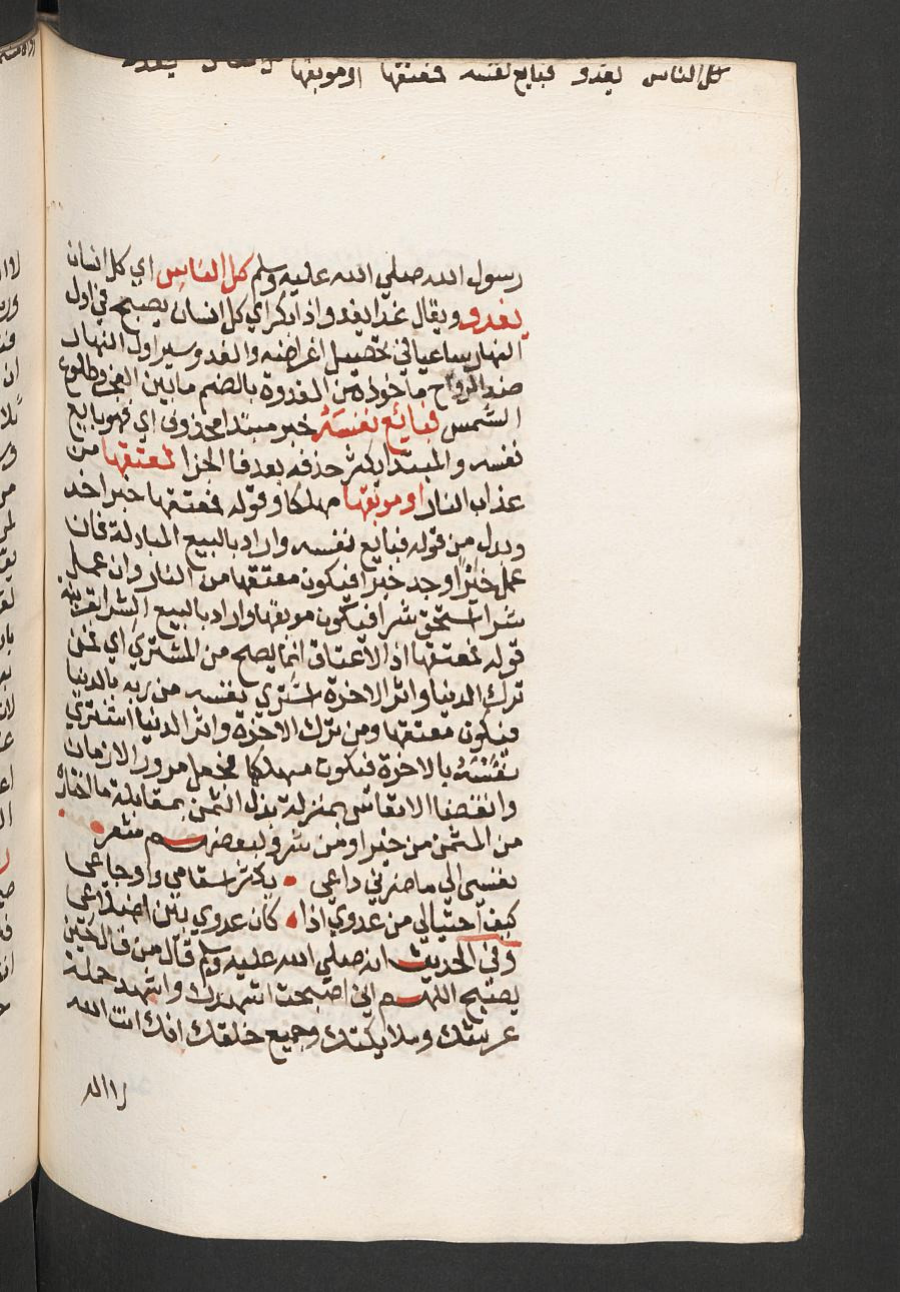 كل الناس يغدو فبايع نفسه فمعتقها او موبقها
رسول الله صلي الله عليه وسلم كل الناس اي كل انسان
يغدو ويقال غدا يغدو اذا بكر اي كل انسان يصبح في اول
النهار ساعيا في تحصيل اغراضه والغدو سير اول النهار
ضد الرواح ماخوذ من الغدوة بالضم ما بين الفجر وطلوع
الشمس فبائع نفسه خبر مبتدا محذوف اي فهو بايع
نفسه والمبتدا يكثر حذفه بعد فا الجزا فمعتقها من
عذاب النار او موبقها مهلكا وقوله فمعتقها خبر اخر
وبدل من قوله فبايع نفسه واراد بالبيع المبادلة فان
عمل خيرا وجد خيرا فيكون معتقها من النار وان عمل
شرا استحق شرا فيكون موبقها واراد بالبيع الشرا لقرينة
قوله فمعتقها اذ الاعتاق انما يصح من المشتري اي فمن
ترك الدنيا واثر الاخرة اشتري نفسه من ربه بالدنيا
فيكون معتقها ومن ترك الاخرة واثر الدنيا اشتري
نفسه بالاخرة فيكون مهلكا فجعل مرور الازمان
وانقضا الانفاس بمنزلة بذل الثمن بمقابلة ما اختاره
من المثمن من خير او من شر ولبعضهم شعر
نفسي الي ما ضرني داعي يكثر اسقامي واوجاعي
كيف احتيالي من عدوي اذا كان عدوي بين اضلاعي
وفي الحديث انه صلي الله عليه وسلم قال من قال حين
يصبح اللهم اني اصبحت اشهدك واشهد حملة
عرشك وملايكتك وجميع خلقك انك انت الله